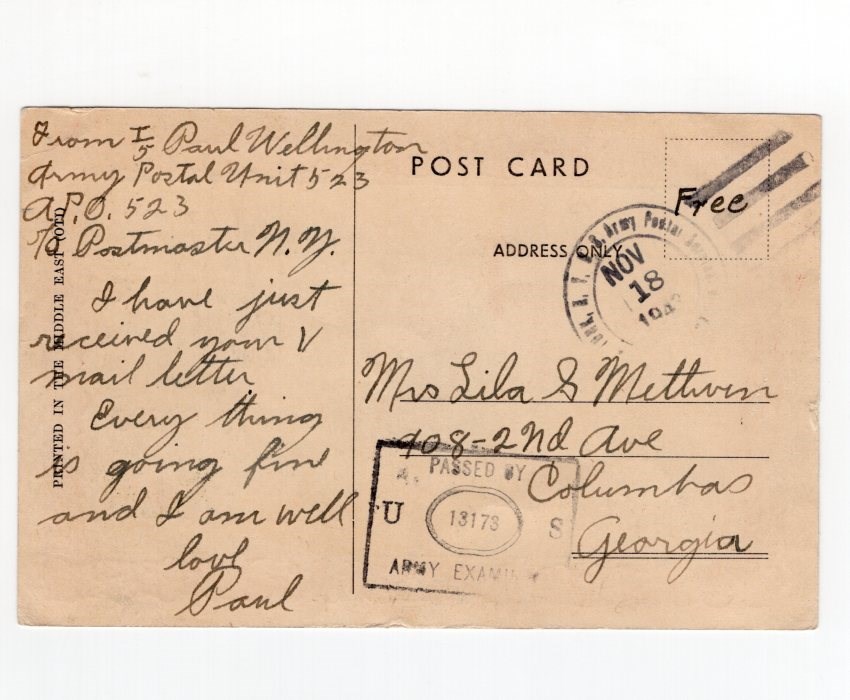 From T/5 Paul Wellington
Army Postal Unit 523
A.P.O. 523
% Postmaster N.Y.
I have just
received your V
mail letter
Every thing
is going fine
and I am well
love
Paul
PRINTED IN THE MIDDLE EAST
POST CARD
Free
ADDRESS ONLY
U.S. Army Postal
NOV
18
Mrs Lila G Methven
908-2nd Ave
Columbas
Georgia
PASSED BY
U 13173 S
ARMY